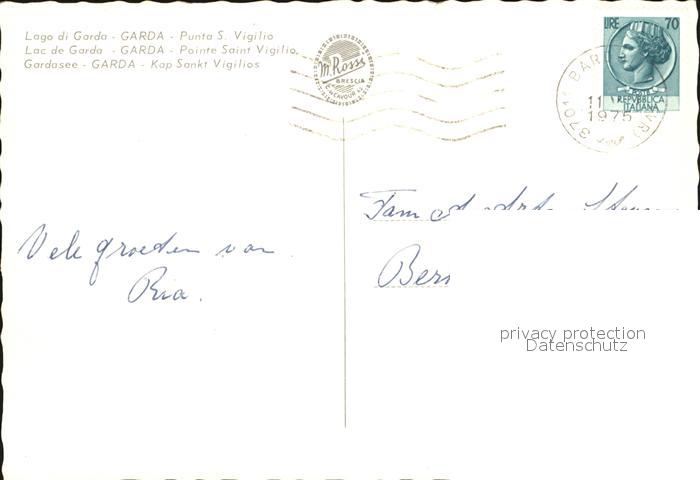 Lago di Garda - GARDA - Punta S. Vigilio
Lac de Garda - GARDA - Pointe Saint Vigilio
Gardasee - GARDA - Kap Sankt Vigilios
M. Rossi
BRESCIA
LIRE 70
POSTE
REPVBBLICA
ITALIANA
1975
Fam
Vele groeten van
Ria.
Bers
privacy protection
Datenschutz